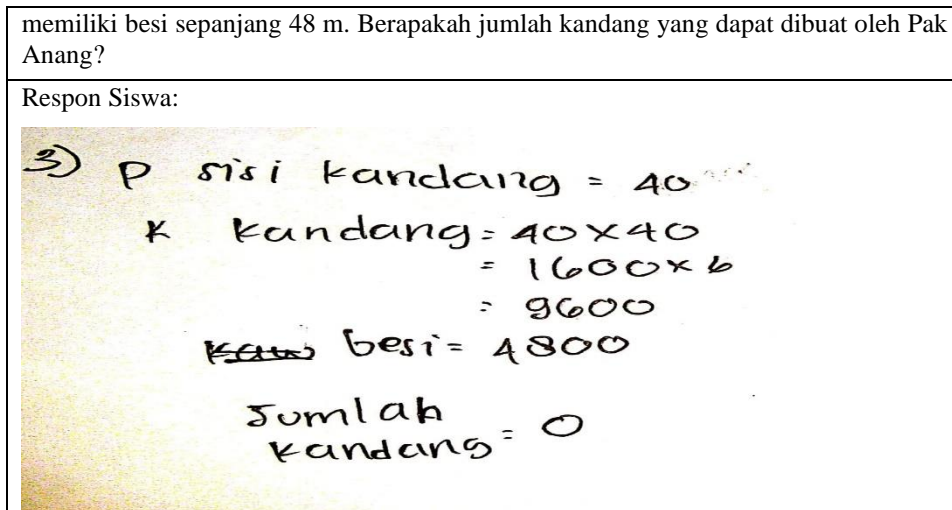 memiliki besi sepanjang 48 m. Berapakah jumlah kandang yang dapat dibuat oleh Pak
Anang?
Respon Siswa:
3) P sisi kandang = 40
K kandang = 40 x 40
= 1600 x 6
= 9600
besi = 4800
Jumlah
kandang = 0